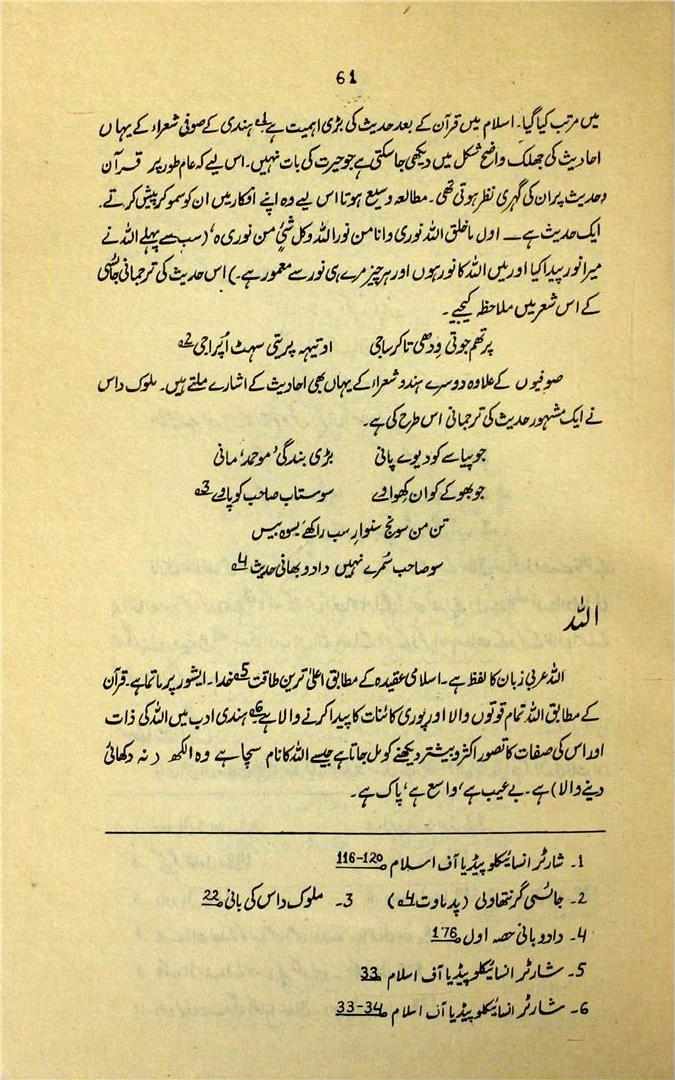 61
میں مرتب کیا گیا۔ اسلام میں قرآن کے بعد حدیث کی بڑی اہمیت ہے 1ه ہندی کے صوفی شعراء کے یہاں
احادیث کی جھلک واضح شکل میں دیکھی جا سکتی ہے جو حیرت کی بات نہیں۔ اس لیے کہ عام طور پر قرآن
وحدیث پر ان کی گہری نظر ہوتی تھی۔ مطالعہ وسیع ہوتا اس لیے وہ اپنے افکار میں ان کو سمو کر پیش کرتے۔
ایک حدیث ہے — اول ما خلق اللہ نوری وانا من نور اللہ وکل شئ من نوری ہ‘ (سب سے پہلے اللہ نے
میرا نور پیدا کیا اور میں اللہ کا نور ہوں اور ہر چیز مرے ہی نور سے معمور ہے۔) اس حدیث کی ترجمانی جائسی
کے اس شعر میں ملاحظہ کیجیے۔
پرتھم جوتی وِدھی تاکر ساجی او تیہہ پرتی سہٹ اُپراجی 2ه
صوفیوں کے علاوہ دوسرے ہندو شعراء کے یہاں بھی احادیث کے اشارے ملتے ہیں۔ ملوک داس
نے ایک مشہور حدیث کی ترجمانی اس طرح کی ہے۔
جو پیاسے کو دیوے پانی بڑی بندگی ’موحمد‘ مانی
جو بھوکے کو ان کھواوے سو ستاب صاحب کو پاوے 3ه
تن من سونج سنوار سب راکھے بسوہ بیس
سو صاحب سُمرے نہیں دادو بھانی حدیث 4ه
اللہ
اللہ عربی زبان کا لفظ ہے۔ اسلامی عقیدہ کے مطابق اعلیٰ ترین طاقت 5ه خدا۔ ایشور پرماتما ہے۔ قرآن
کے مطابق اللہ تمام قوتوں والا اور پوری کائنات کا پیدا کرنے والا ہے 6ه ہندی ادب میں اللہ کی ذات
اور اس کی صفات کا تصور اکثر و بیشتر دیکھنے کو مل جاتا ہے جیسے اللہ کا نام سچا ہے وہ الکھ (نہ دکھائی
دینے والا) ہے۔ بے عیب ہے‘ واسع ہے‘ پاک ہے۔
1۔ شارٹر انسائیکلوپیڈیا آف اسلام 116-120
2۔ جائسی گرنتھاولی (پدماوت 4ه) 3۔ ملوک داس کی بانی 22
4۔ دادو بانی حصہ اول 176
5۔ شارٹر انسائیکلوپیڈیا آف اسلام 33
6۔ شارٹر انسائیکلوپیڈیا آف اسلام 33-34